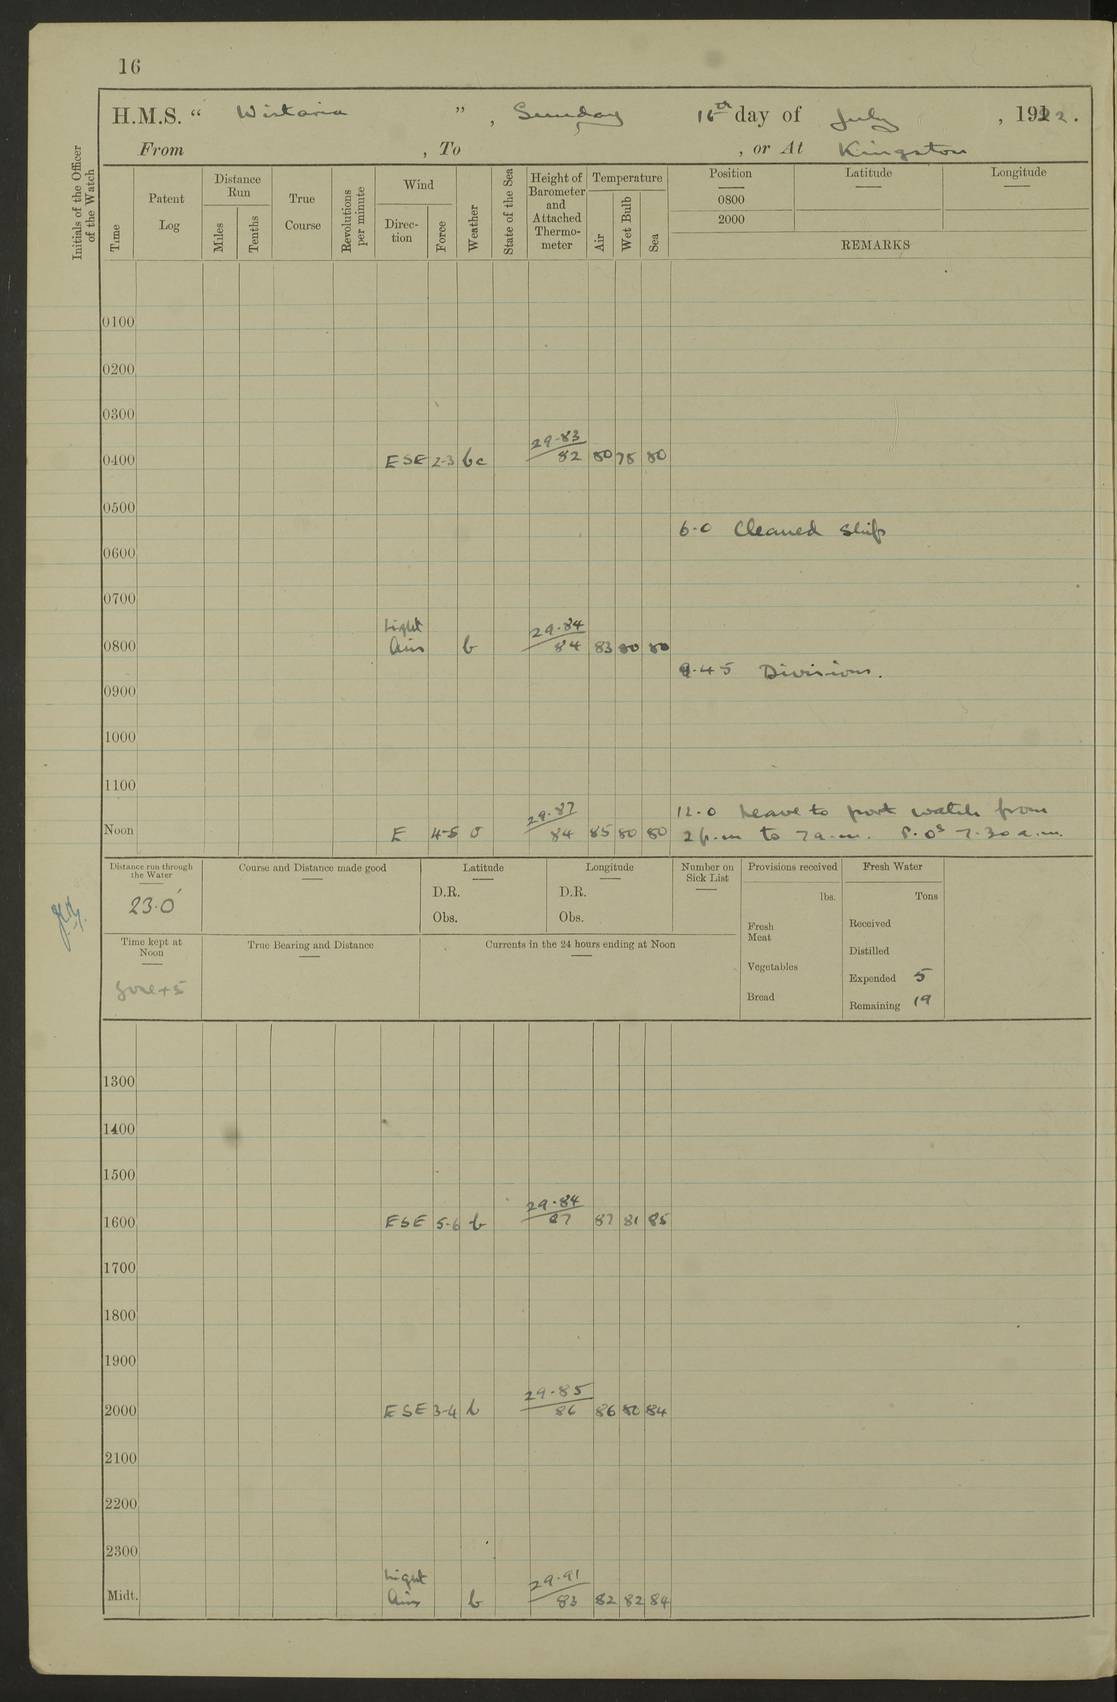 16
H.M.S. “ Wistaria ” , Sunday 16th day of July , 1922.
From , To , or At Kingston
Initials of the Officer of the Watch
Time
Patent Log
Distance Run
Miles
Tenths
True Course
Revolutions per minute
Wind
Direc-tion
Force
Weather
State of the Sea
Height of Barometer and Attached Thermo-meter
Temperature
Air
Wet Bulb
Sea
Position Latitude Longitude
0800
2000
REMARKS
0100
0200
0300
29.83
0400 ESE 2-3 bc 82 80 78 80
0500
6.0 Cleaned Ship
0600
0700
Light 29.84
0800 Airs b 84 83 80 80
9.45 Divisions.
0900
1000
1100
29.87 12.0 Leave to port watch from
Noon E 4-5 84 85 80 80 2 p.m to 7 a.m. P.Os 7.30 a.m.
Distance run through the Water
23.0
Course and Distance made good
Latitude
D.R.
Obs.
Longitude
D.R.
Obs.
Number on Sick List
Provisions received
lbs.
Fresh Meat
Vegetables
Bread
Fresh Water
Tons
Received
Distilled
Expended 5
Remaining 19
Time kept at Noon
Zone +5
True Bearing and Distance
Currents in the 24 hours ending at Noon
1300
1400
1500
29.84
1600 ESE 5-6 b 87 87 81 85
1700
1800
1900
29.85
2000 ESE 3-4 b 86 86 80 84
2100
2200
2300
Light 29.91
Midt. Airs b 83 82 82 84